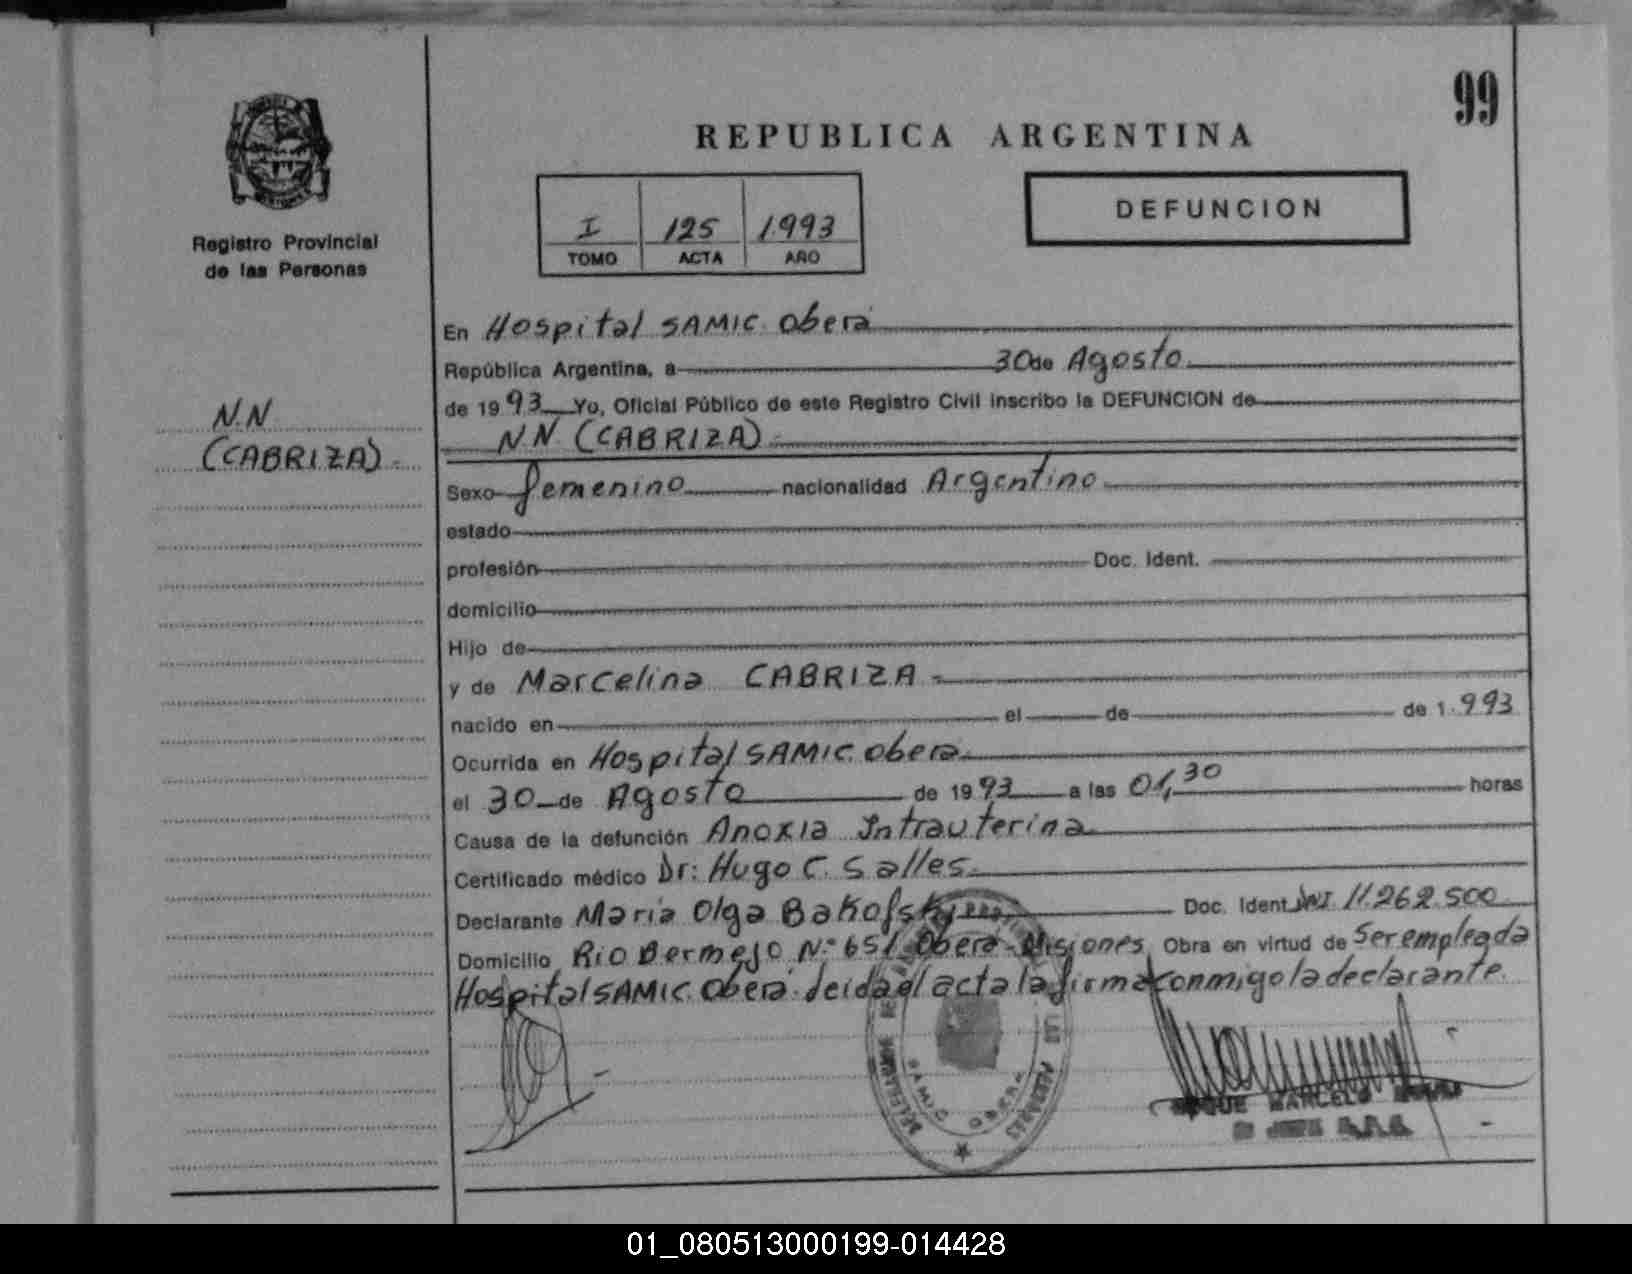 99
REPUBLICA ARGENTINA
I 125 1.993
TOMO ACTA AÑO
DEFUNCION
Registro Provincial
de las Personas
N.N
(CABRIZA)
En Hospital SAMIC. Oberá
República Argentina, a 30 de Agosto
de 1993 Yo, Oficial Público de este Registro Civil inscribo la DEFUNCION de
N.N (CABRIZA)
Sexo femenino nacionalidad Argentino
estado
profesión Doc. Ident.
domicilio
Hijo de
y de Marcelina CABRIZA
nacido en el de de 1.993
Ocurrida en Hospital SAMIC. Oberá
el 30 de Agosto de 1993 a las 01,30 horas
Causa de la defunción Anoxia Intrauterina
Certificado médico Dr: Hugo C. Salles
Declarante María Olga Bakofsky Doc. Ident DNI 11.262.500
Domicilio Rio Bermejo N° 651 Oberá-Misiones Obra en virtud de Ser empleada
Hospital SAMIC. Oberá. leida el acta la firma conmigo la declarante.
SAMIC OBERA
MARCELO
01_080513000199-014428